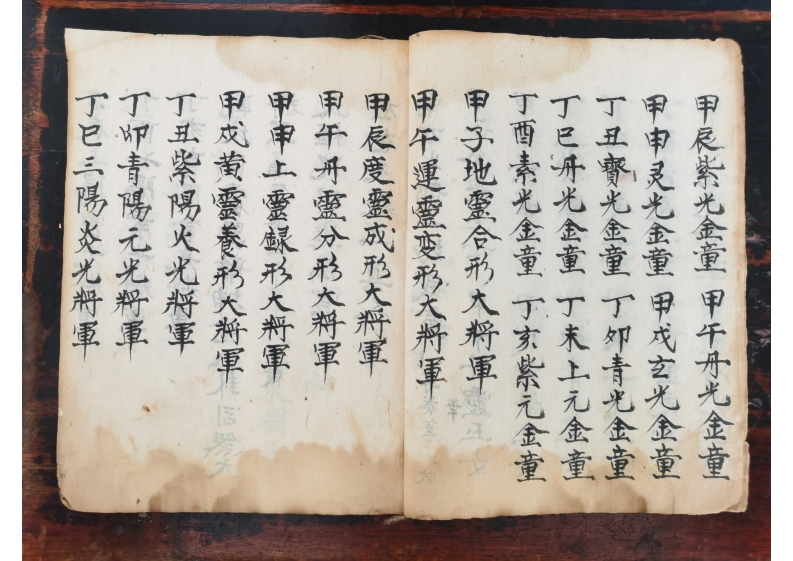 甲辰紫光金童 甲午丹光金童
甲申灵光金童 甲戌玄光金童
丁丑寳光金童 丁卯青光金童
丁巳丹光金童 丁未上元金童
丁酉素光金童 丁亥紫元金童
甲子地靈合形大將軍
甲午運靈变形大將軍
甲辰度靈成形大將軍
甲午丹靈分形大將軍
甲申上靈録形大將軍
甲戌黄靈養形大將軍
丁丑紫陽火光將軍
丁卯青陽元光將軍
丁巳三陽炎光將軍